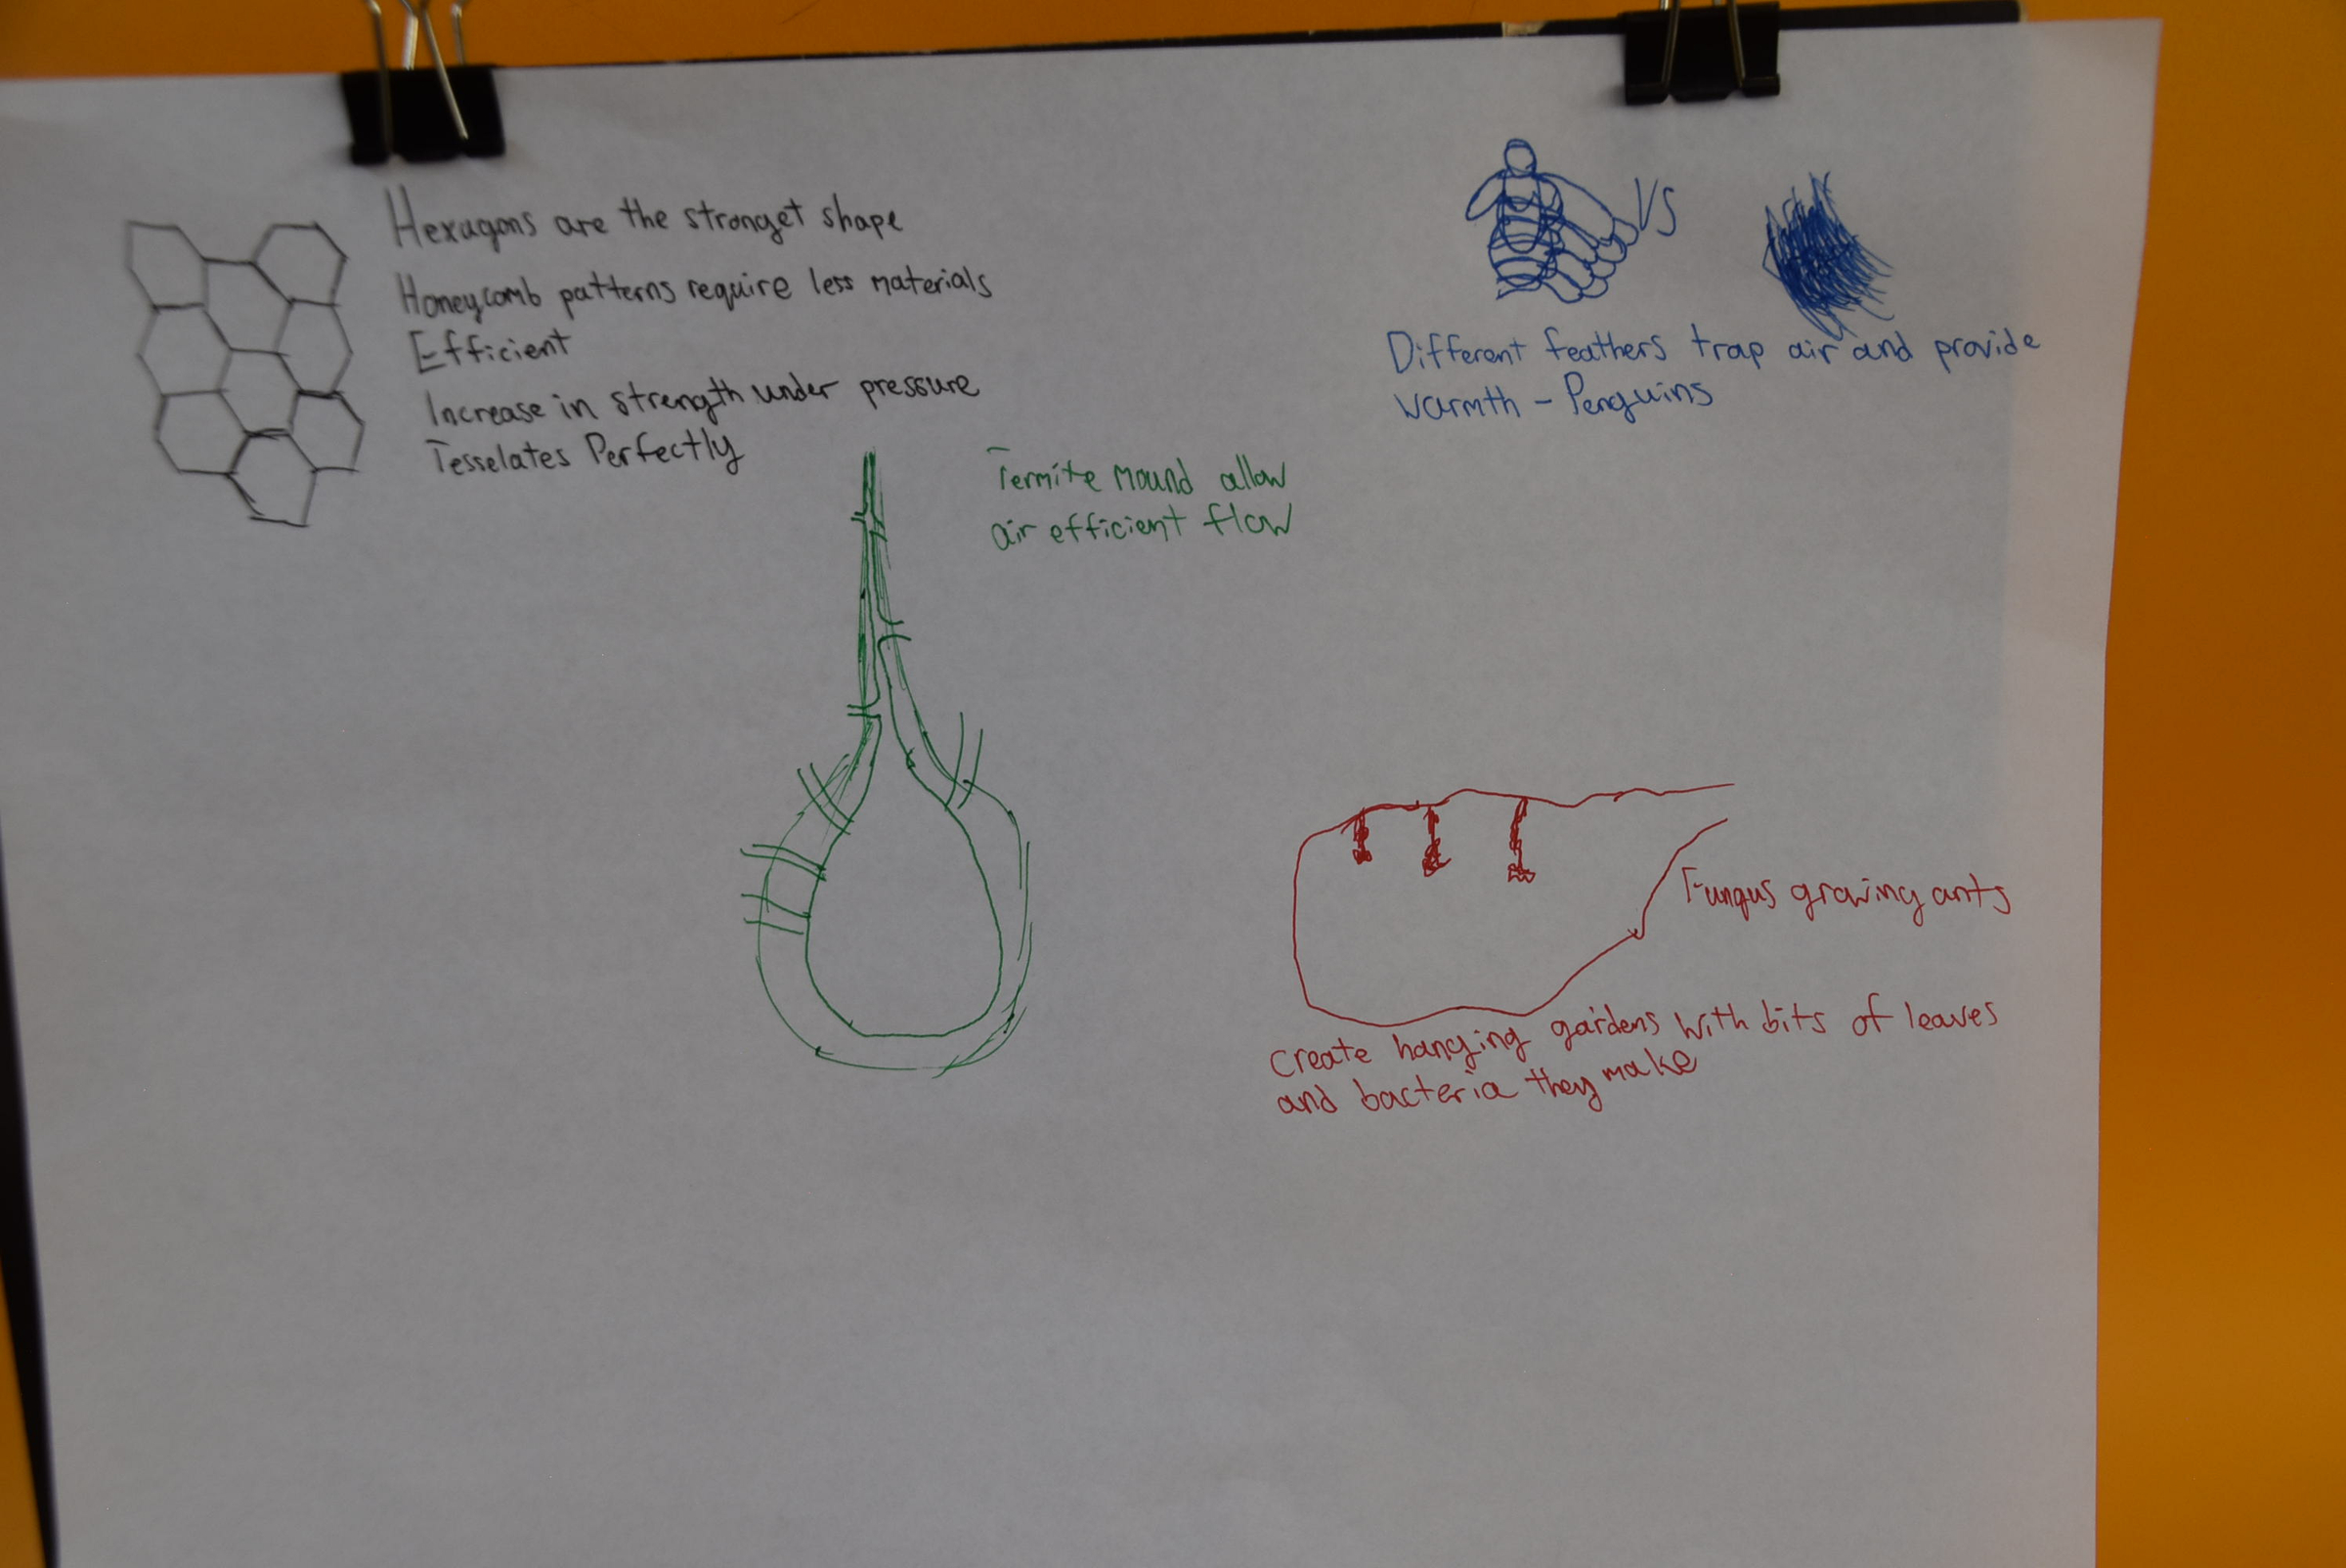 Hexagons are the stronget shape
Honeycomb patterns require less materials
Efficient
Increase in strength under pressure
Tesselates Perfectly
VS
Different feathers trap air and provide
warmth - Penguins
Termite Mound allow
air efficient flow
Fungus growing ants
Create hanging gardens with bits of leaves
and bacteria they make